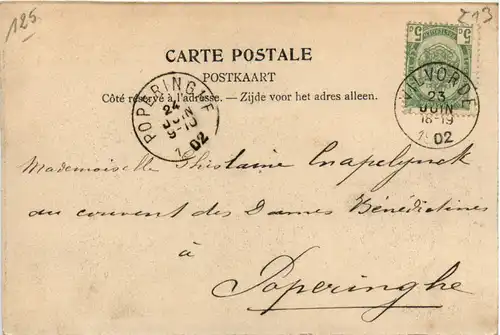 125
213
CARTE POSTALE
POSTKAART
Côté réservé à l'adresse. — Zijde voor het adres alleen.
5 5
VILVORDE
23
JUIN
18-19
1902
POPERINGHE
24
JUIN
9-10
1902
Mademoiselle Ghislaine Cnapelynck
au couvent des Dames Bénédictines
à
Poperinghe